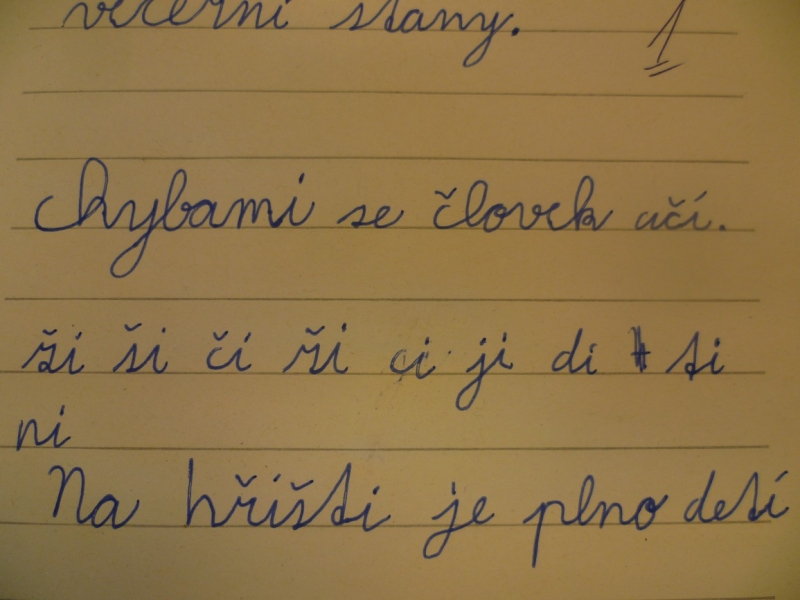 večerní stany. 1
Chybami se človek učí.
ži ši či ři ci ji di ti
ni
Na hřišti je plno detí